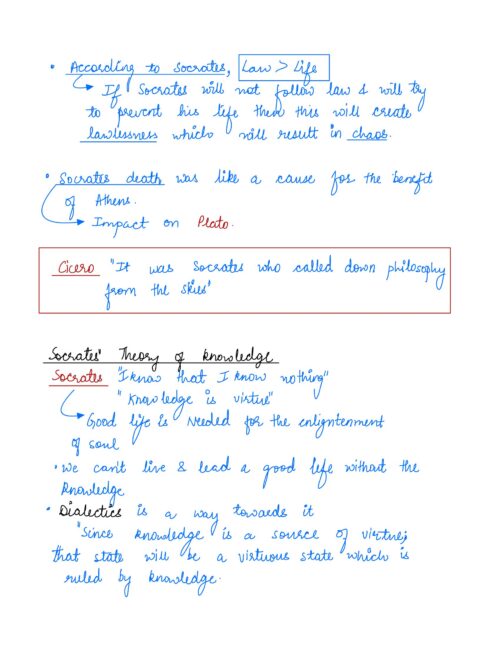 • According to Socrates, Law > Life
If Socrates will not follow law & will try
to prevent his life then this will create
lawlessness which will result in chaos.
• Socrates death was like a cause for the benefit
of Athens.
Impact on Plato.
Cicero "It was Socrates who called down philosophy
from the skies"
Socrates' Theory of knowledge
Socrates "I know that I know nothing"
"Knowledge is virtue"
Good life is needed for the enlightenment
of soul
• We can't live & lead a good life without the
Knowledge
• Dialectics is a way towards it
"Since knowledge is a source of virtue;
that state will be a virtuous state which is
ruled by knowledge.